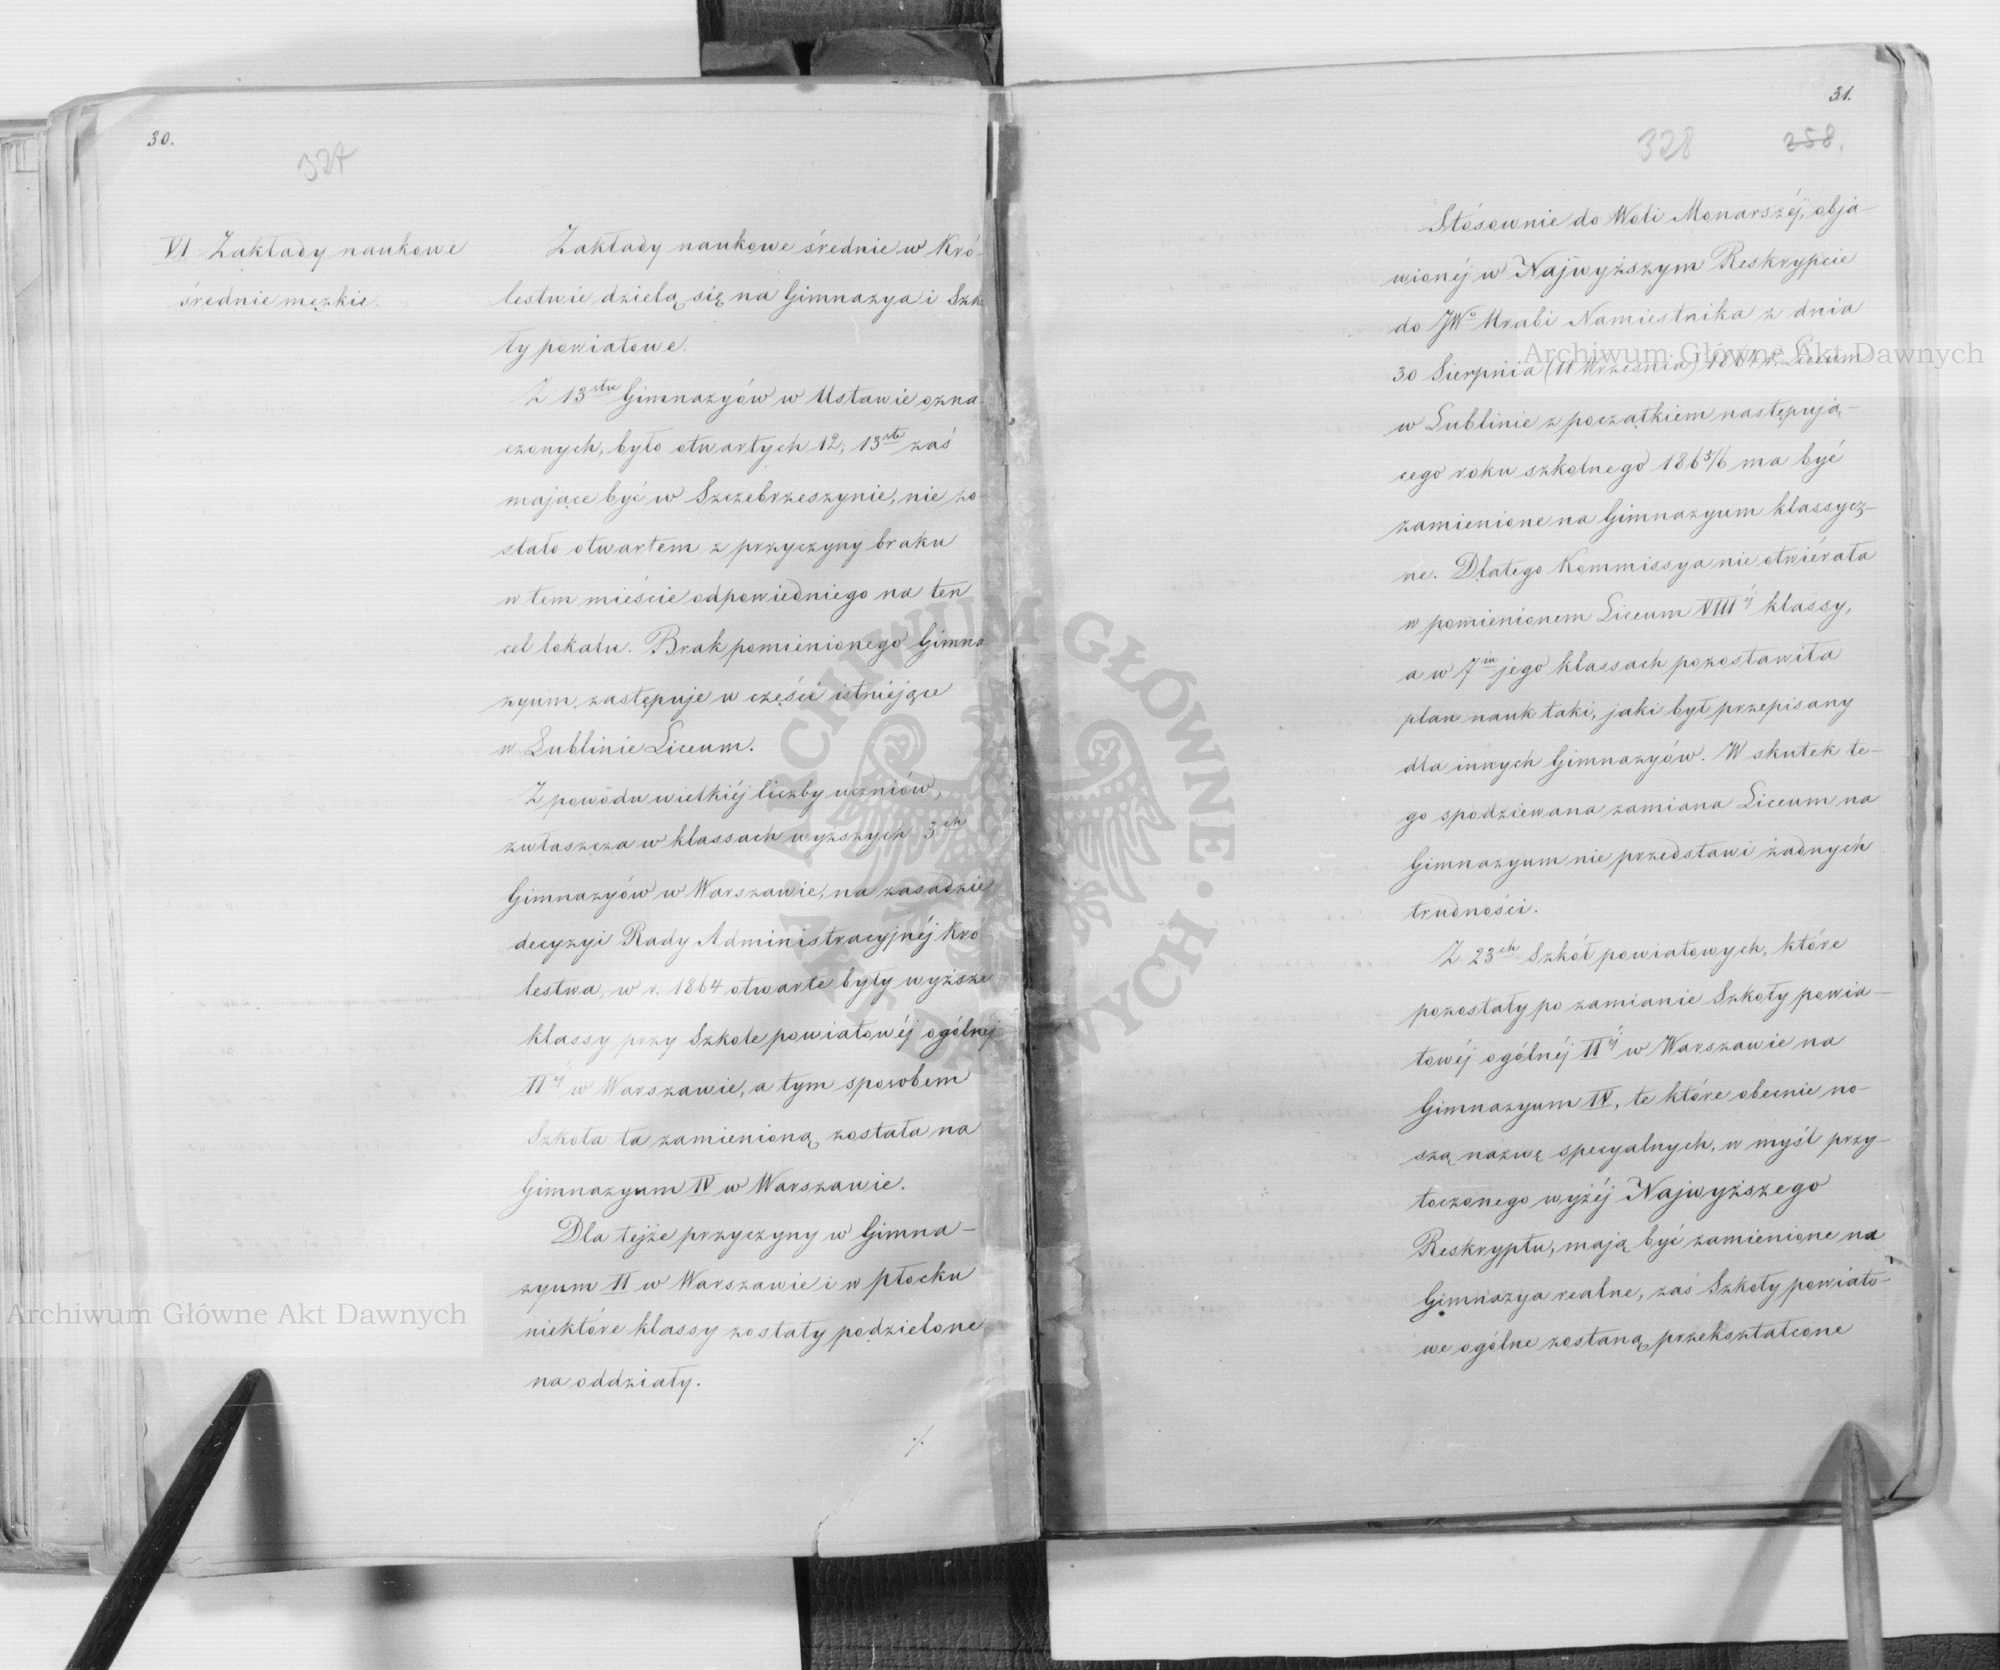 30.
327
VI Zakłady naukowe
średnie męzkie.
Zakłady naukowe średnie w Kró-
lestwie dzielą się na Gimnazya i Szko
ły powiatowe.
Z 13stu Gimnazyów w Ustawie ozna
czonych, było otwartych 12, 13ste zaś
mające być w Szczebrzeszynie, nie zo-
stało otwartem z przyczyny braku
w tem mieście odpowiedniego na ten
cel lokalu. Brak pomienionego Gimna
zyum zastępuje w części istniejące
w Lublinie Liceum.
Z powodu wielkiéj liczby uczniów,
zwłaszcza w klassach wyższych 3ch
Gimnazyów w Warszawie, na zasadzie
decyzyi Rady Administracyjnéj Kró
lestwa, w r. 1864 otwarte były wyższe
klassy przy Szkole powiatowéj ogólnej
IIéj w Warszawie, a tym sposobem
Szkoła ta zamienioną została na
Gimnazyum IV w Warszawie.
Dla tejże przyczyny w Gimna-
zyum II w Warszawie i w Płocku
niektóre klassy zostały podzielone
na oddziały.
./.
31.
328 258.
Stósownie do Woli Monarszéj, obja-
wionéj w Najwyższym Reskrypcie
do JWo Hrabi Namiestnika z dnia
30 Sierpnia (11 Września) 1864 r. Liceum
w Lublinie z początkiem następują-
cego roku szkolnego 1865/6 ma być
zamienione na Gimnazyum klassycz-
ne. Dlatego Kommissya nie otwiérała
w pomienionem Liceum VIIIéj klassy,
a w 7iu jego klassach pozostawiła
plan nauk taki, jaki był przepisany
dla innych Gimnazyów. W skutek te-
go spodziewana zamiana Liceum na
Gimnazyum nie przedstawi żadnych
trudności.
Z 23ch Szkół powiatowych, które
pozostały po zamianie Szkoły powia-
towéj ogólnéj IIéj w Warszawie na
Gimnazyum IV, te które obecnie no-
szą nazwę specyalnych, w myśl przy-
toczonego wyżéj Najwyższego
Reskryptu, mają być zamienione na
Gimnazya realne, zaś Szkoły powiato-
we ogólne zostaną przekształcone
Archiwum Główne Akt Dawnych
Archiwum Główne Akt Dawnych
ARCHIWUM GŁÓWNE AKT DAWNYCH